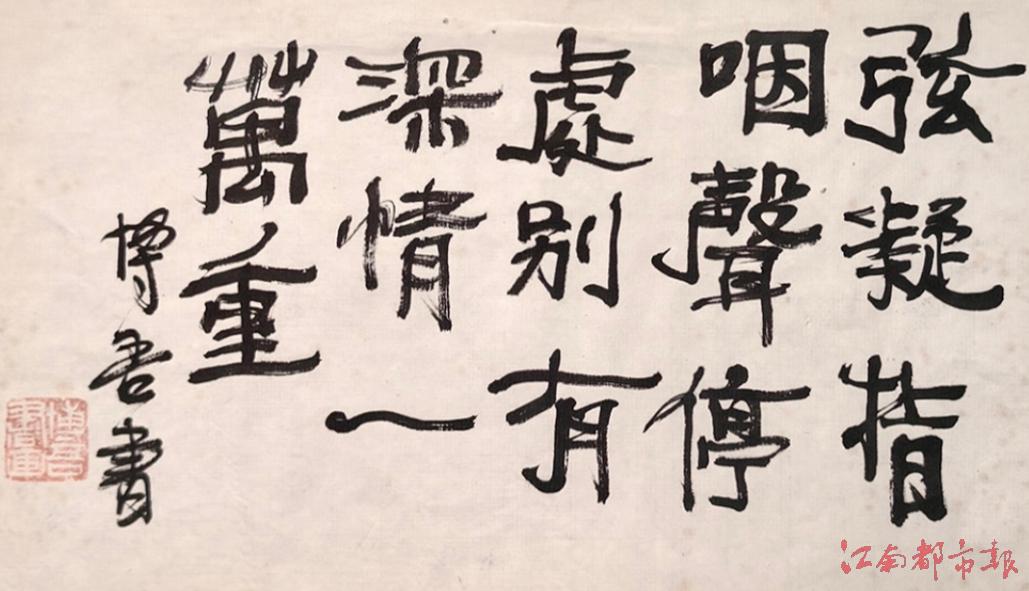 弦凝指
咽聲停
處别有
深情一
萬重
博吾書
江南都市報